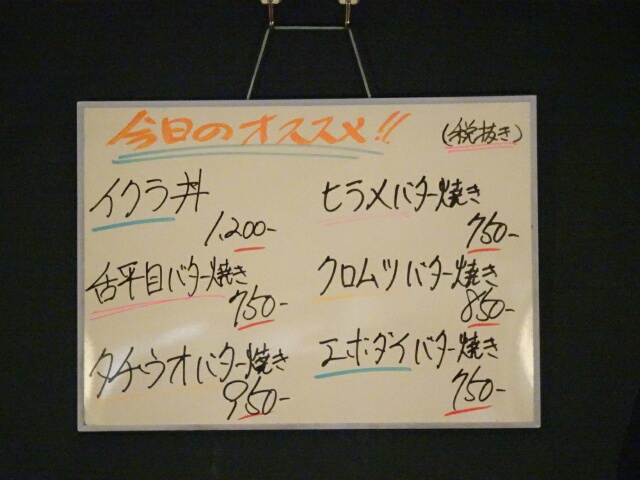 今日のオススメ!!
(税抜き)
イクラ丼
1,200-
舌平目バター焼き
750-
タチウオバター焼き
950-
ヒラメバター焼き
750-
クロムツバター焼き
850-
エボダイバター焼き
750-